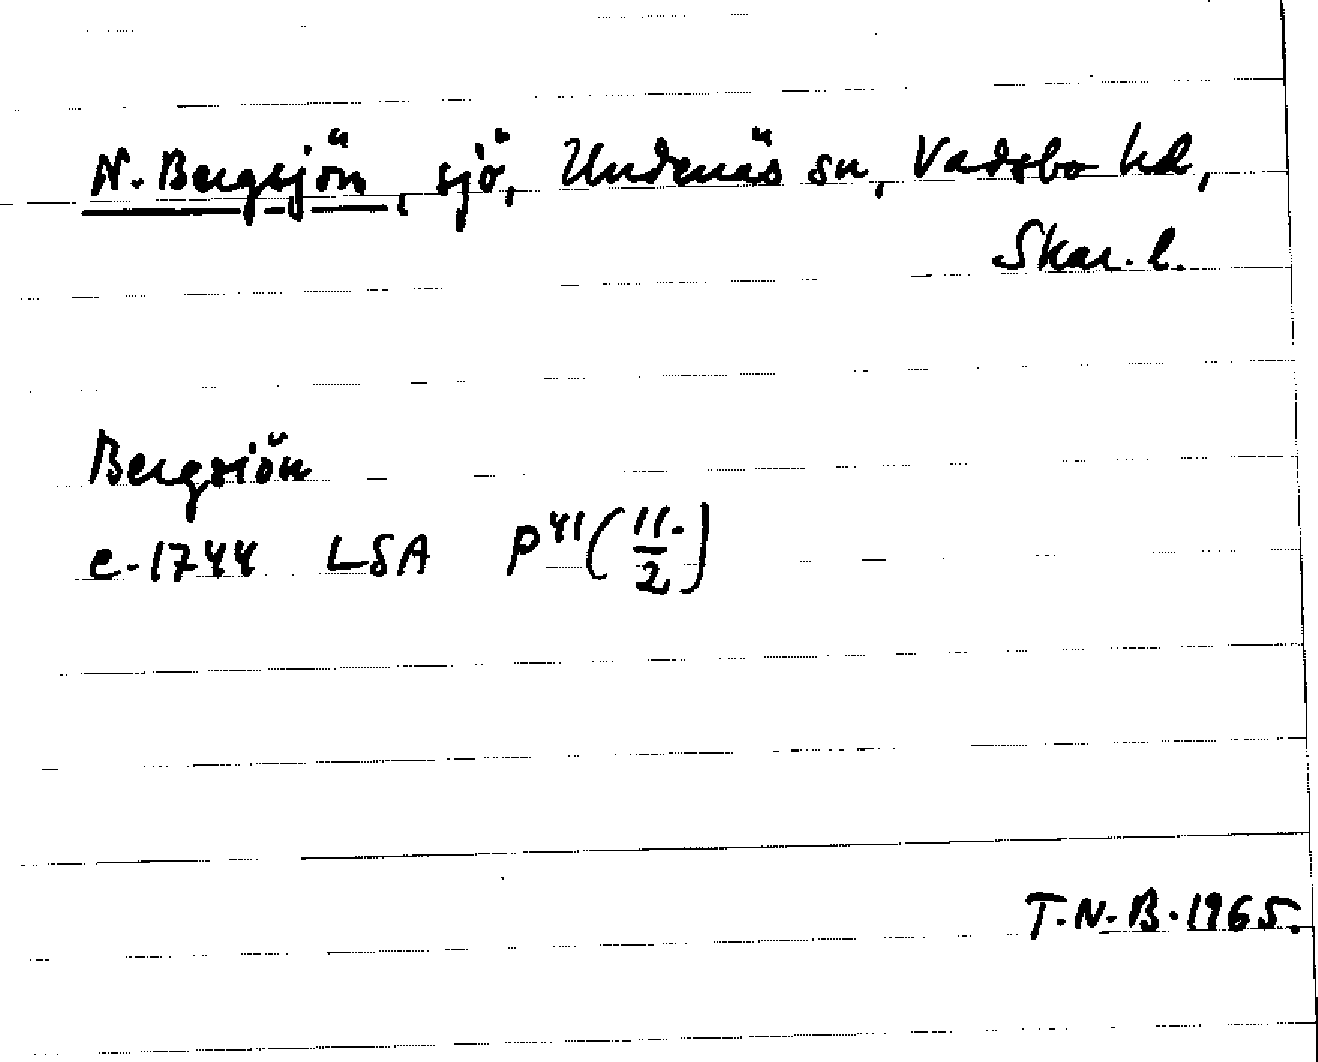 N. Bergsjön, sjö, Undenäs sn, Vadsbo hd,
Skar. l.
Bergsiön
c. 1744 LSA P⁴¹(11./2)
T.N.B. 1965.